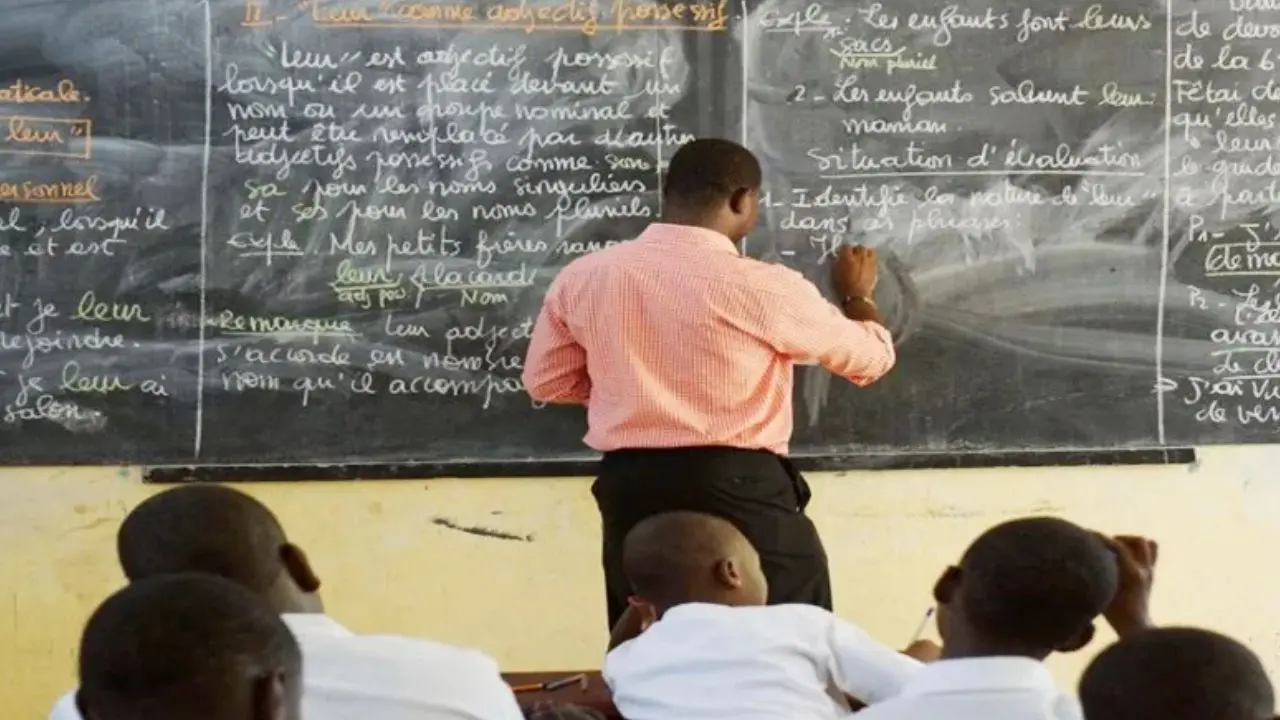 "leur"
personnel
, lorsqu'il
et est
je leur
rejoindre.
je leur ai
salon.
II - "Leur" comme adjectif possessif
"Leur" est adjectif possessif
lorsqu'il est placé devant un
nom ou un groupe nominal et
peut être remplacé par d'autres
adjectifs possessifs comme son
sa pour les noms singuliers
et ses pour les noms pluriels.
Exple. Mes petits frères
leur placard
adj pos Nom
Remarque leur
s'accorde en nombre
nom qu'il accompagne
Exple: Les enfants font leurs
sacs
Nom pluriel
2 - Les enfants saluent leur
maman.
Situation d'évaluation
1 - Identifie la nature de "leur"
dans ces phrases:
de la 6
qu'elles
leur
le
à
P1 - J'
P2 -
J'ai
de